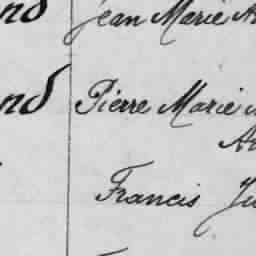 nd Jean Marie A
nd Pierre Marie
Au
Francis Ju